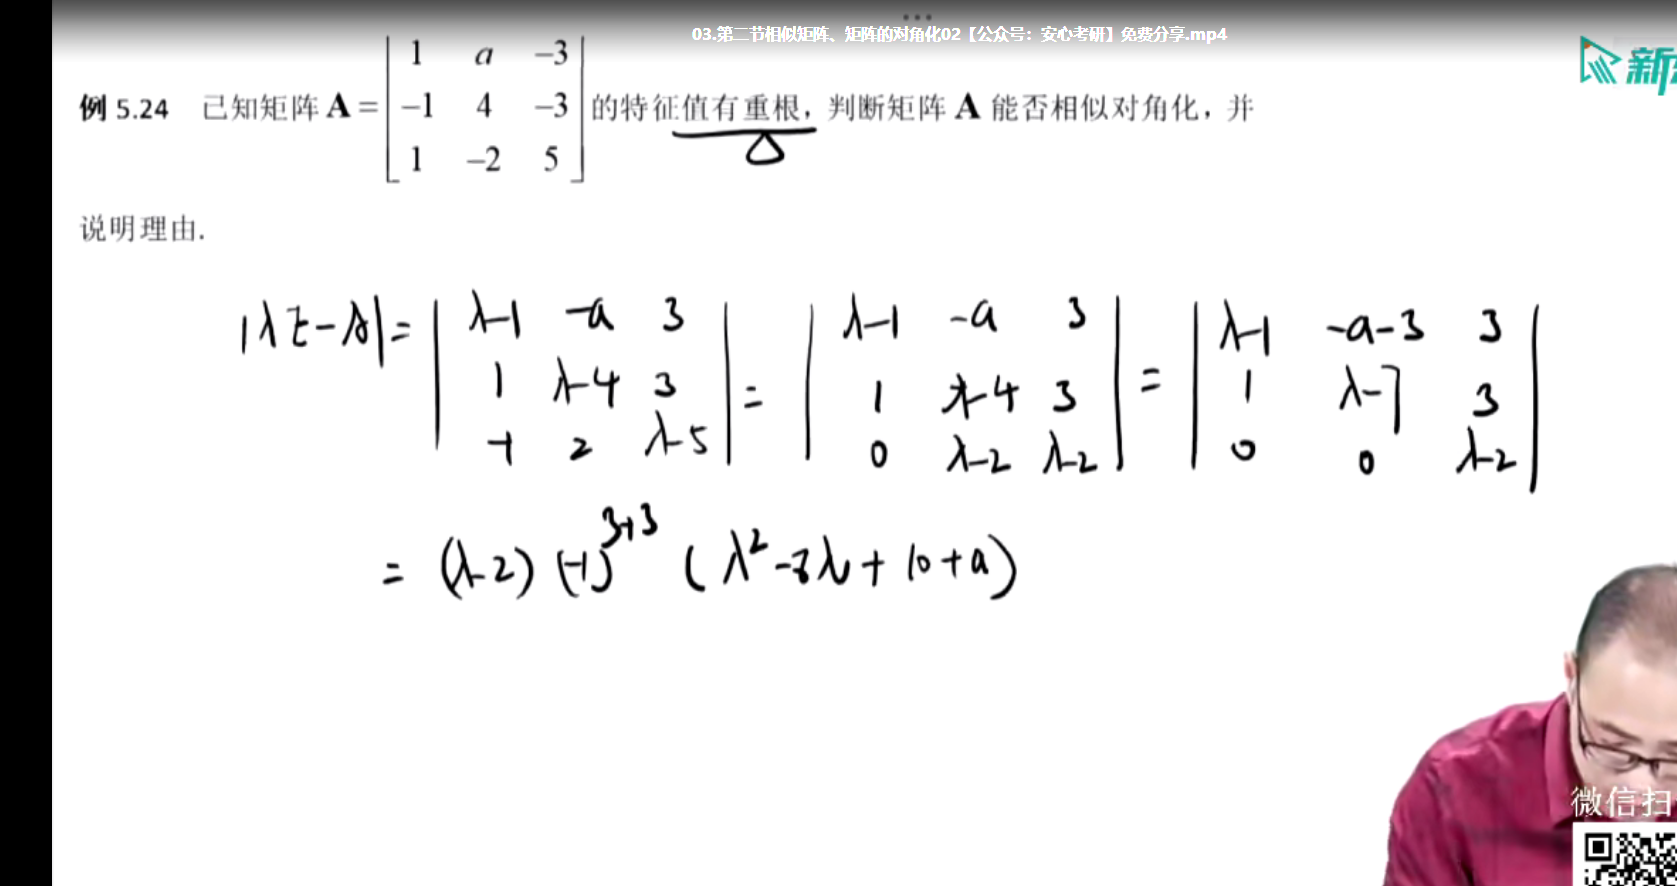 03.第二节相似矩阵、矩阵的对角化02【公众号：安心考研】免费分享.mp4
新
例 5.24 已知矩阵 A = [1 a -3; -1 4 -3; 1 -2 5] 的特征值有重根，判断矩阵 A 能否相似对角化，并
说明理由.
|λE-A| = |λ-1 -a 3; 1 λ-4 3; -1 2 λ-5| = |λ-1 -a 3; 1 λ-4 3; 0 λ-2 λ-2| = |λ-1 -a-3 3; 1 λ-7 3; 0 0 λ-2|
= (λ-2) (-1)^{3+3} (λ²-8λ+10+a)
微信扫